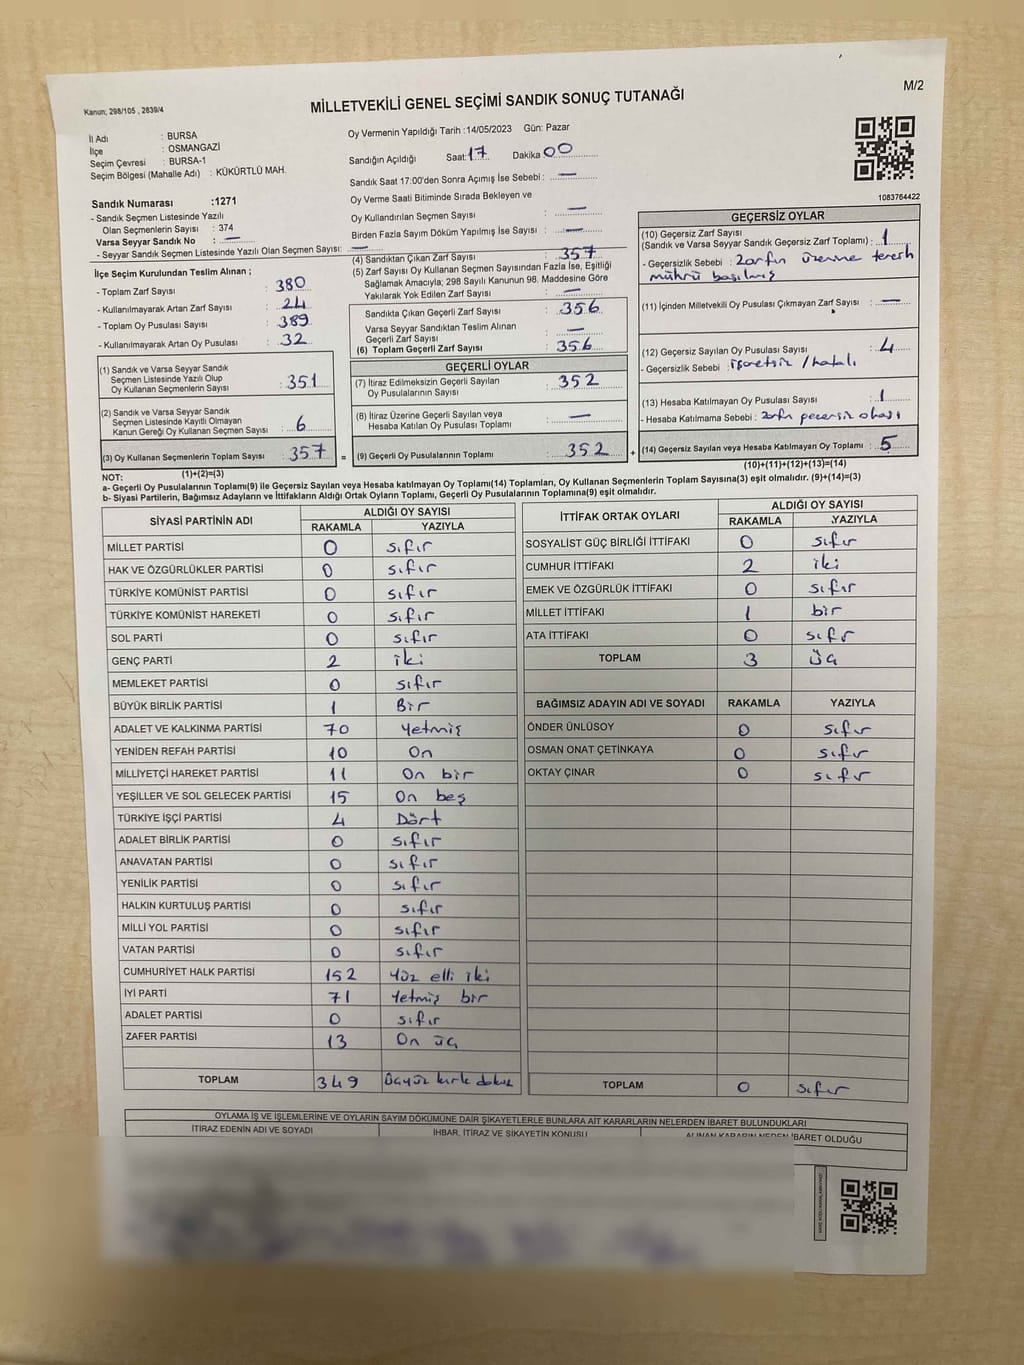 M/2
Kanun; 298/105 , 2839/4
MİLLETVEKİLİ GENEL SEÇİMİ SANDIK SONUÇ TUTANAĞI
İl Adı : BURSA
İlçe : OSMANGAZİ
Seçim Çevresi : BURSA-1
Seçim Bölgesi (Mahalle Adı) : KÜKÜRTLÜ MAH.
Oy Vermenin Yapıldığı Tarih :14/05/2023 Gün: Pazar
Sandığın Açıldığı Saat: 17 Dakika 00
Sandık Saat 17:00'den Sonra Açımış İse Sebebi : —
Oy Verme Saati Bitiminde Sırada Bekleyen ve
Oy Kullandırılan Seçmen Sayısı : —
Birden Fazla Sayım Döküm Yapılmış İse Sayısı : —
1083764422
Sandık Numarası :1271
- Sandık Seçmen Listesinde Yazılı
Olan Seçmenlerin Sayısı : 374
Varsa Seyyar Sandık No : —
- Seyyar Sandık Seçmen Listesinde Yazılı Olan Seçmen Sayısı: —
İlçe Seçim Kurulundan Teslim Alınan ;
- Toplam Zarf Sayısı : 380
- Kullanılmayarak Artan Zarf Sayısı : 24
- Toplam Oy Pusulası Sayısı : 389
- Kullanılmayarak Artan Oy Pusulası : 32
(1) Sandık ve Varsa Seyyar Sandık
Seçmen Listesinde Yazılı Olup
Oy Kullanan Seçmenlerin Sayısı : 351
(2) Sandık ve Varsa Seyyar Sandık
Seçmen Listesinde Kayıtlı Olmayan
Kanun Gereği Oy Kullanan Seçmen Sayısı : 6
(3) Oy Kullanan Seçmenlerin Toplam Sayısı : 357
(1)+(2)=(3)
(4) Sandıktan Çıkan Zarf Sayısı : 357
(5) Zarf Sayısı Oy Kullanan Seçmen Sayısından Fazla İse, Eşitliği
Sağlamak Amacıyla; 298 Sayılı Kanunun 98. Maddesine Göre
Yakılarak Yok Edilen Zarf Sayısı : —
Sandıkta Çıkan Geçerli Zarf Sayısı : 356
Varsa Seyyar Sandıktan Teslim Alınan
Geçerli Zarf Sayısı : —
(6) Toplam Geçerli Zarf Sayısı : 356
GEÇERLİ OYLAR
(7) İtiraz Edilmeksizin Geçerli Sayılan
Oy Pusulasının Sayısı : 352
(8) İtiraz Üzerine Geçerli Sayılan veya
Hesaba Katılan Oy Pusulası Toplamı : —
= (9) Geçerli Oy Pusulalarının Toplamı : 352 +
GEÇERSİZ OYLAR
(10) Geçersiz Zarf Sayısı
(Sandık ve Varsa Seyyar Sandık Geçersiz Zarf Toplamı) : 1
- Geçersizlik Sebebi : Zarfın üzerine tercih
mührü basılmış
(11) İçinden Milletvekili Oy Pusulası Çıkmayan Zarf Sayısı : —
(12) Geçersiz Sayılan Oy Pusulası Sayısı : 4
- Geçersizlik Sebebi : işaretsiz / hatalı
(13) Hesaba Katılmayan Oy Pusulası Sayısı : 1
- Hesaba Katılmama Sebebi : Zarfın geçersiz olması
(14) Geçersiz Sayılan veya Hesaba Katılmayan Oy Toplamı : 5
(10)+(11)+(12)+(13)=(14)
NOT:
a- Geçerli Oy Pusulalarının Toplamı(9) ile Geçersiz Sayılan veya Hesaba katılmayan Oy Toplamı(14) Toplamları, Oy Kullanan Seçmenlerin Toplam Sayısına(3) eşit olmalıdır. (9)+(14)=(3)
b- Siyasi Partilerin, Bağımsız Adayların ve İttifakların Aldığı Ortak Oyların Toplamı, Geçerli Oy Pusulalarının Toplamına(9) eşit olmalıdır.
SİYASİ PARTİNİN ADI ALDIĞI OY SAYISI
RAKAMLA YAZIYLA
MİLLET PARTİSİ 0 sıfır
HAK VE ÖZGÜRLÜKLER PARTİSİ 0 sıfır
TÜRKİYE KOMÜNİST PARTİSİ 0 sıfır
TÜRKİYE KOMÜNİST HAREKETİ 0 sıfır
SOL PARTİ 0 sıfır
GENÇ PARTİ 2 iki
MEMLEKET PARTİSİ 0 sıfır
BÜYÜK BİRLİK PARTİSİ 1 Bir
ADALET VE KALKINMA PARTİSİ 70 Yetmiş
YENİDEN REFAH PARTİSİ 10 On
MİLLİYETÇİ HAREKET PARTİSİ 11 On bir
YEŞİLLER VE SOL GELECEK PARTİSİ 15 On beş
TÜRKİYE İŞÇİ PARTİSİ 4 Dört
ADALET BİRLİK PARTİSİ 0 sıfır
ANAVATAN PARTİSİ 0 sıfır
YENİLİK PARTİSİ 0 sıfır
HALKIN KURTULUŞ PARTİSİ 0 sıfır
MİLLİ YOL PARTİSİ 0 sıfır
VATAN PARTİSİ 0 sıfır
CUMHURİYET HALK PARTİSİ 152 Yüz elli iki
İYİ PARTİ 71 Yetmiş bir
ADALET PARTİSİ 0 sıfır
ZAFER PARTİSİ 13 On üç
TOPLAM 349 Üçyüz kırk dokuz
İTTİFAK ORTAK OYLARI ALDIĞI OY SAYISI
RAKAMLA YAZIYLA
SOSYALİST GÜÇ BİRLİĞİ İTTİFAKI 0 sıfır
CUMHUR İTTİFAKI 2 iki
EMEK VE ÖZGÜRLÜK İTTİFAKI 0 sıfır
MİLLET İTTİFAKI 1 bir
ATA İTTİFAKI 0 sıfr
TOPLAM 3 üç
BAĞIMSIZ ADAYIN ADI VE SOYADI RAKAMLA YAZIYLA
ÖNDER ÜNLÜSOY 0 sıfır
OSMAN ONAT ÇETİNKAYA 0 sıfır
OKTAY ÇINAR 0 sıfır
TOPLAM 0 sıfır
OYLAMA İŞ VE İŞLEMLERİNE VE OYLARIN SAYIM DÖKÜMÜNE DAİR ŞİKAYETLERLE BUNLARA AİT KARARLARIN NELERDEN İBARET BULUNDUKLARI
İTİRAZ EDENİN ADI VE SOYADI İHBAR, İTİRAZ VE ŞİKAYETİN KONUSU ALINAN KARARIN NEDEN İBARET OLDUĞU